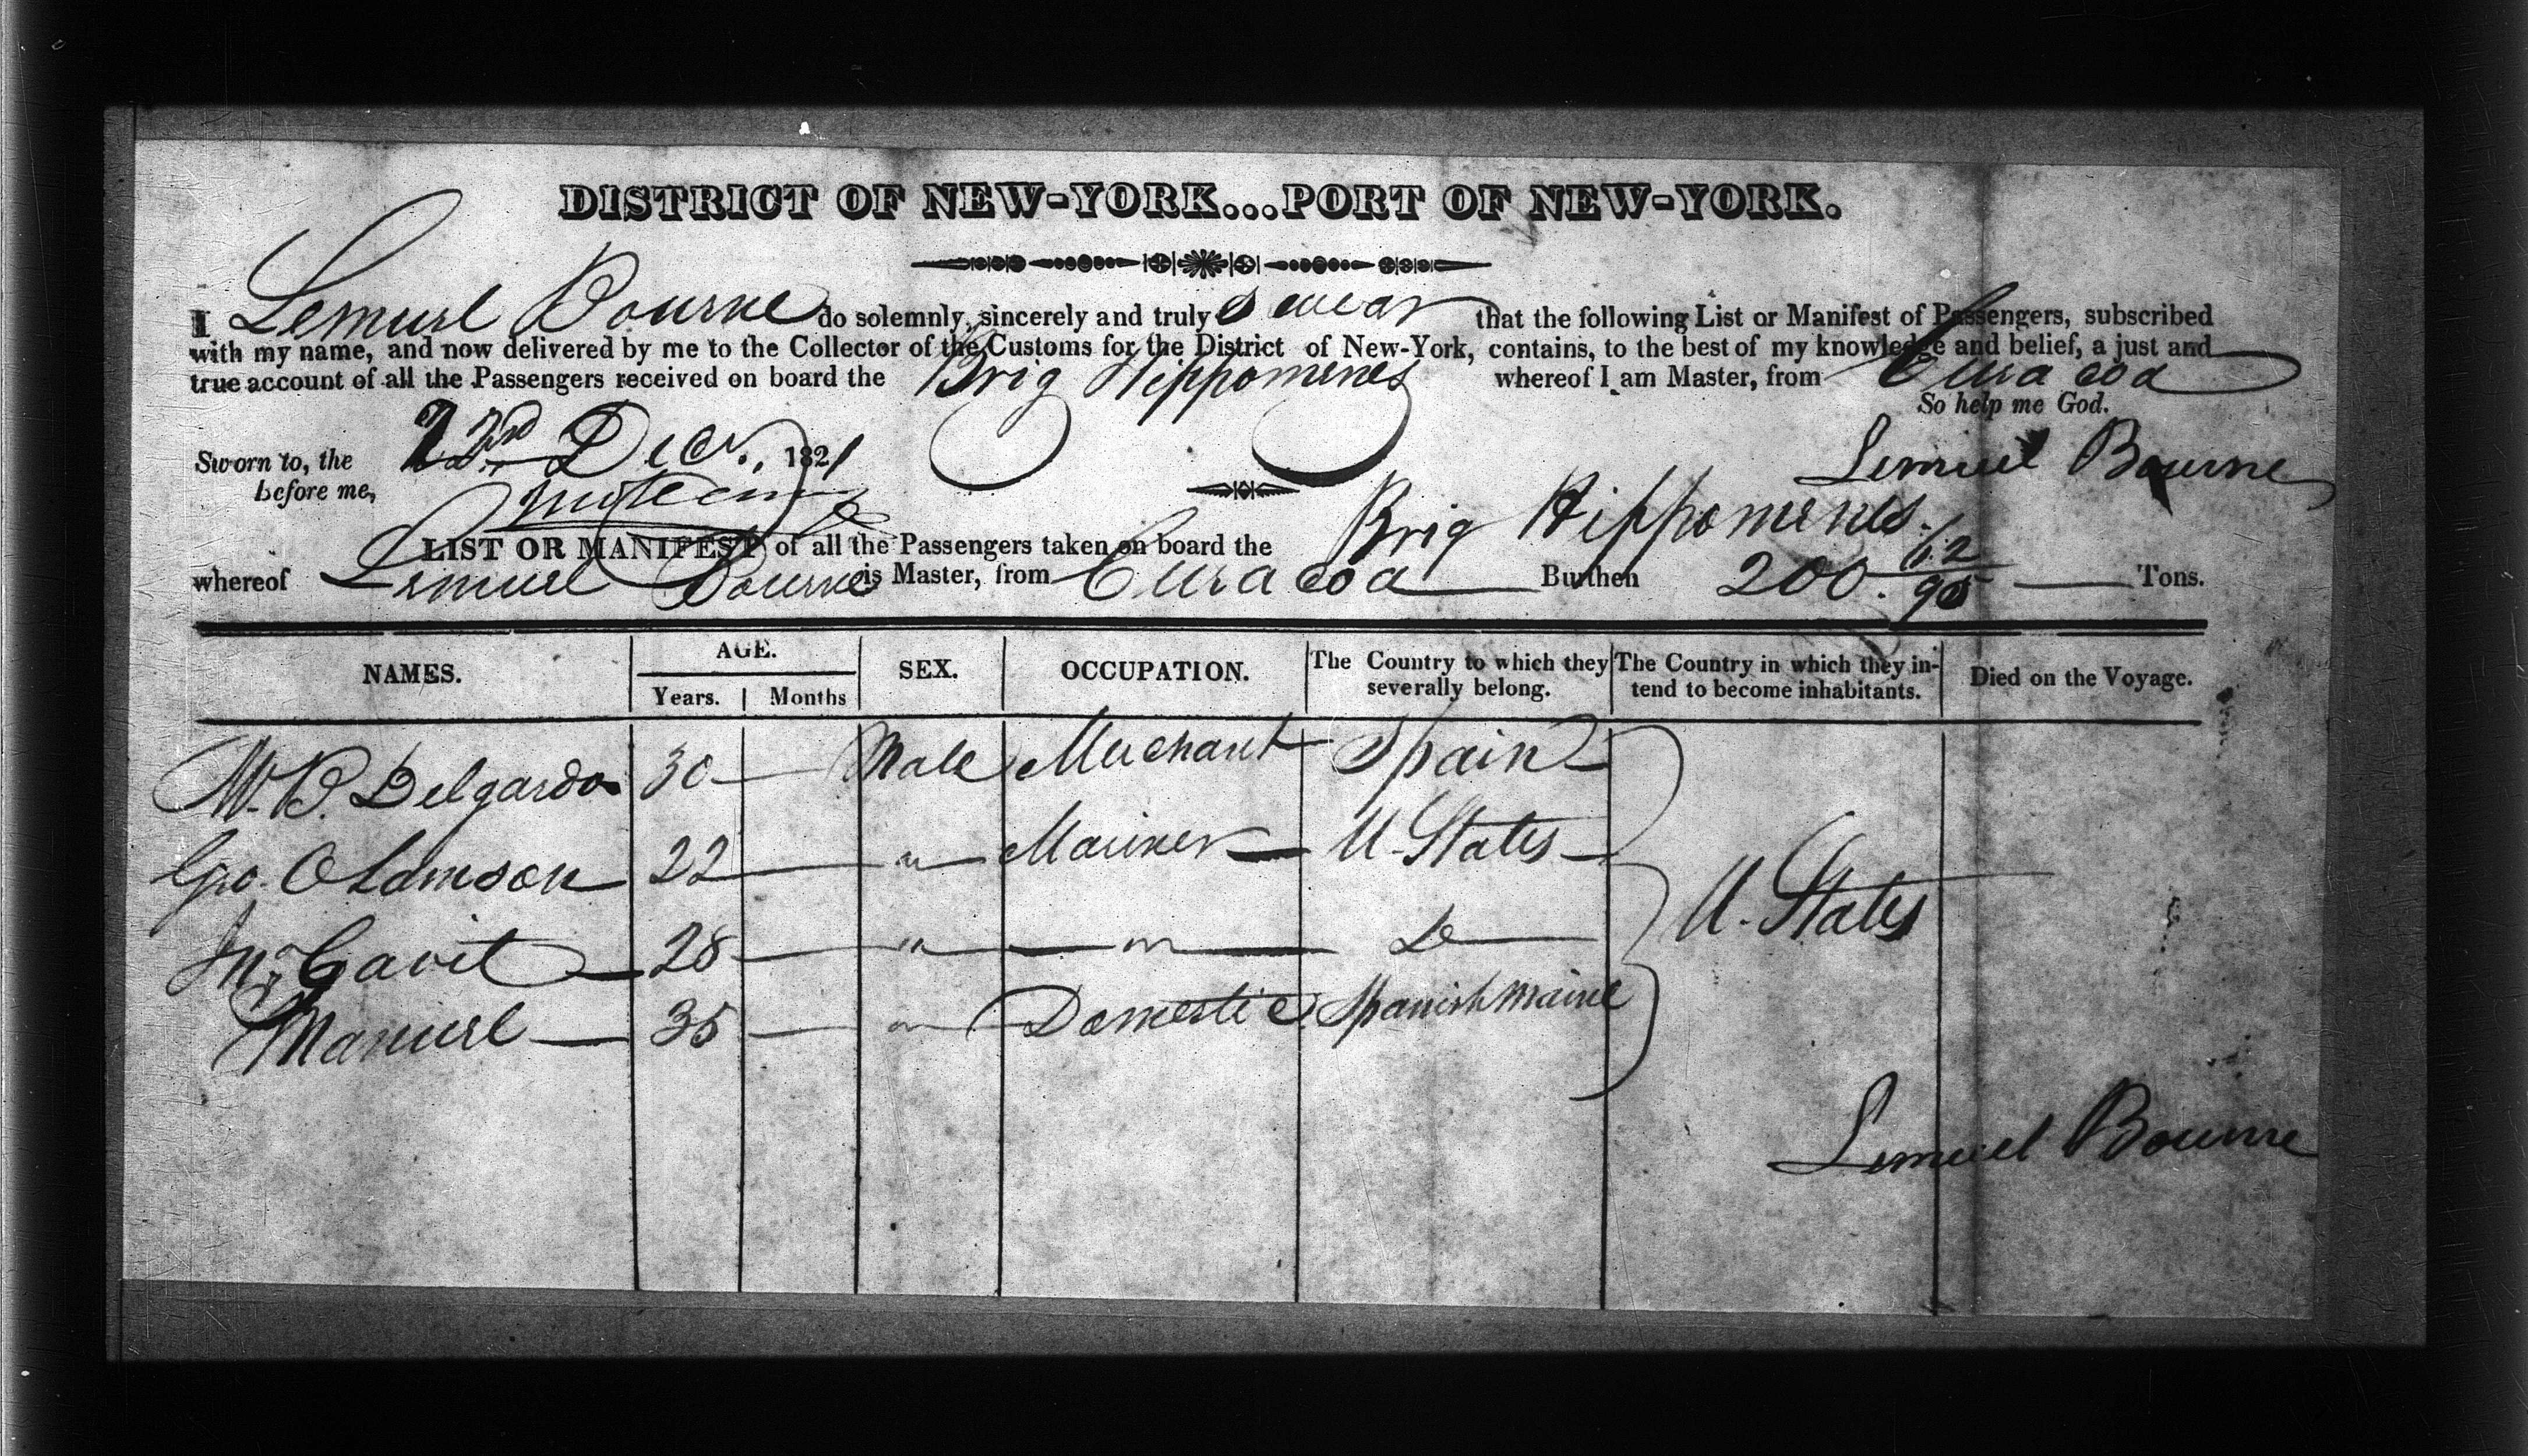 DISTRICT OF NEW-YORK...PORT OF NEW-YORK.
I Lemuel Bourne do solemnly, sincerely and truly swear that the following List or Manifest of Passengers, subscribed
with my name, and now delivered by me to the Collector of the Customs for the District of New-York, contains, to the best of my knowledge and belief, a just and
true account of all the Passengers received on board the Brig Hippomenes whereof I am Master, from Curacoa
So help me God.
Sworn to, the 22nd Decr. 1821
Lemuel Bourne
before me,
LIST OR MANIFEST of all the Passengers taken on board the Brig Hippomenes.
whereof Lemuel Bourne is Master, from Curacoa Burthen 200. 62/95 Tons.
NAMES. AGE. SEX. OCCUPATION. The Country to which they severally belong. The Country in which they intend to become inhabitants. Died on the Voyage.
Years. Months
M. B. Delgardo 30 Male Merchant Spain
Geo. O Lamson 22 " Mariner U. States
Jno. Cavit 28 " " Do
Manuel 35 " Domestic Spanish maine
U. States
Lemuel Bourne